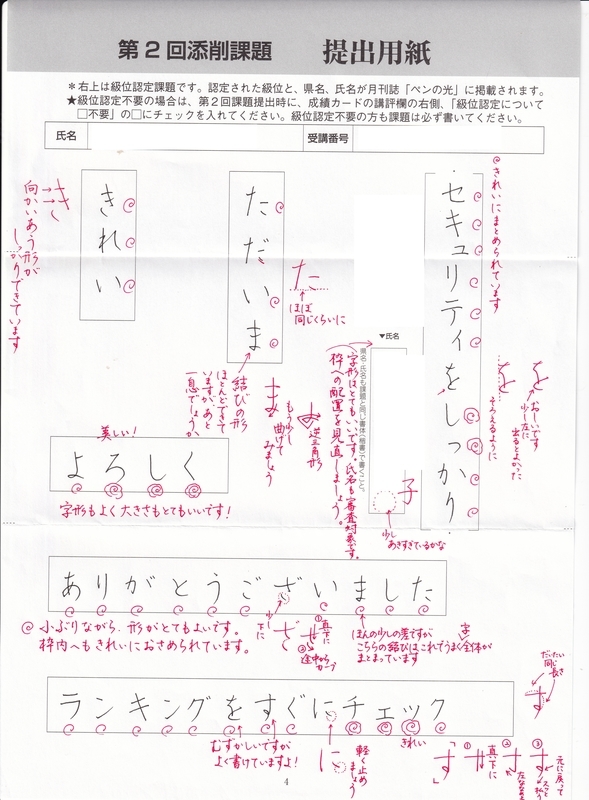 第2回添削課題　提出用紙
＊右上は級位認定課題です。認定された級位と、県名、氏名が月刊誌「ペンの光」に掲載されます。
★級位認定不要の場合は、第2回課題提出時に、成績カードの講評欄の右側、「級位認定について
□不要」の□にチェックを入れてください。級位認定不要の方も課題は必ず書いてください。
氏名
受講番号
セキュリティをしっかり
きれいにまとめられています
を
を
おしいです
少し左に
出るとよかった
そろえるように
▼氏名
県名・氏名も課題と同じ書体(楷書)で書くこと。
字形はとてもいいです。氏名も審査対象です。
枠への配置を見直しましょう。
子
少し
あきすぎているかな
ただいま
た
ほぼ
同じくらいに
結びの形
ほとんどできて
いますが、あと
一息でしょうか
ま
もう少し
曲げて
みましょう
逆三角形
きれい
き
向かいあう形が
しっかりできています
美しい!
よろしく
字形もよく大きさもとてもいいです!
ありがとうございました
小ぶりながら、形がとてもよいです。
枠内へもきれいにおさめられています。
少し
下に
ざ
①真下に
②途中からカーブ
ほんの少しの差ですが
こちらの結びはこれでうまく全体が
まとまっています
ランキングをすぐにチェック
むずかしいですが
よく書けていますよ!
に
軽く止め
ましょう
きれい
だいたい
同じ
長さ
す
「す」
①
真下に
②
③
元に戻って
4